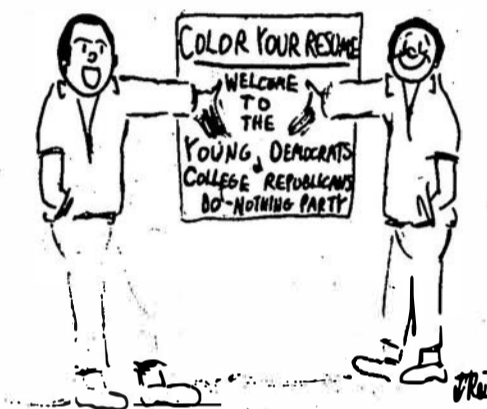 COLOR YOUR RESUME
WELCOME
TO
THE
YOUNG DEMOCRATS
&
COLLEGE REPUBLICANS
DO-NOTHING PARTY